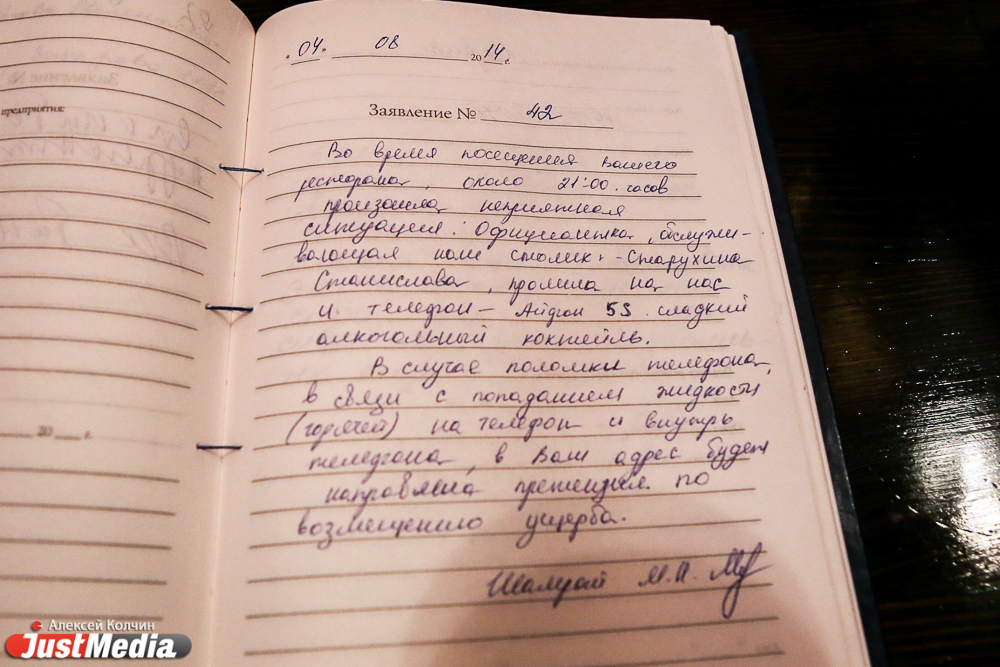 предприятия:
20 г.
"04" 08 2014 г.
Заявление № 42
Во время посещения вашего
ресторана, около 21:00 часов
произошла неприятная
ситуация: Официантка, обслужи-
вающая наш столик - Старухина
Станислава, пролила на нас
и телефон - Айфон 5S сладкий
алкогольный коктейль.
В случае поломки телефона,
в связи с попаданием жидкости
(горячей) на телефон и внутрь
телефона, в Ваш адрес будет
направлена претензия по
возмещению ущерба.
М.П.
Алексей Колчин
JustMedia